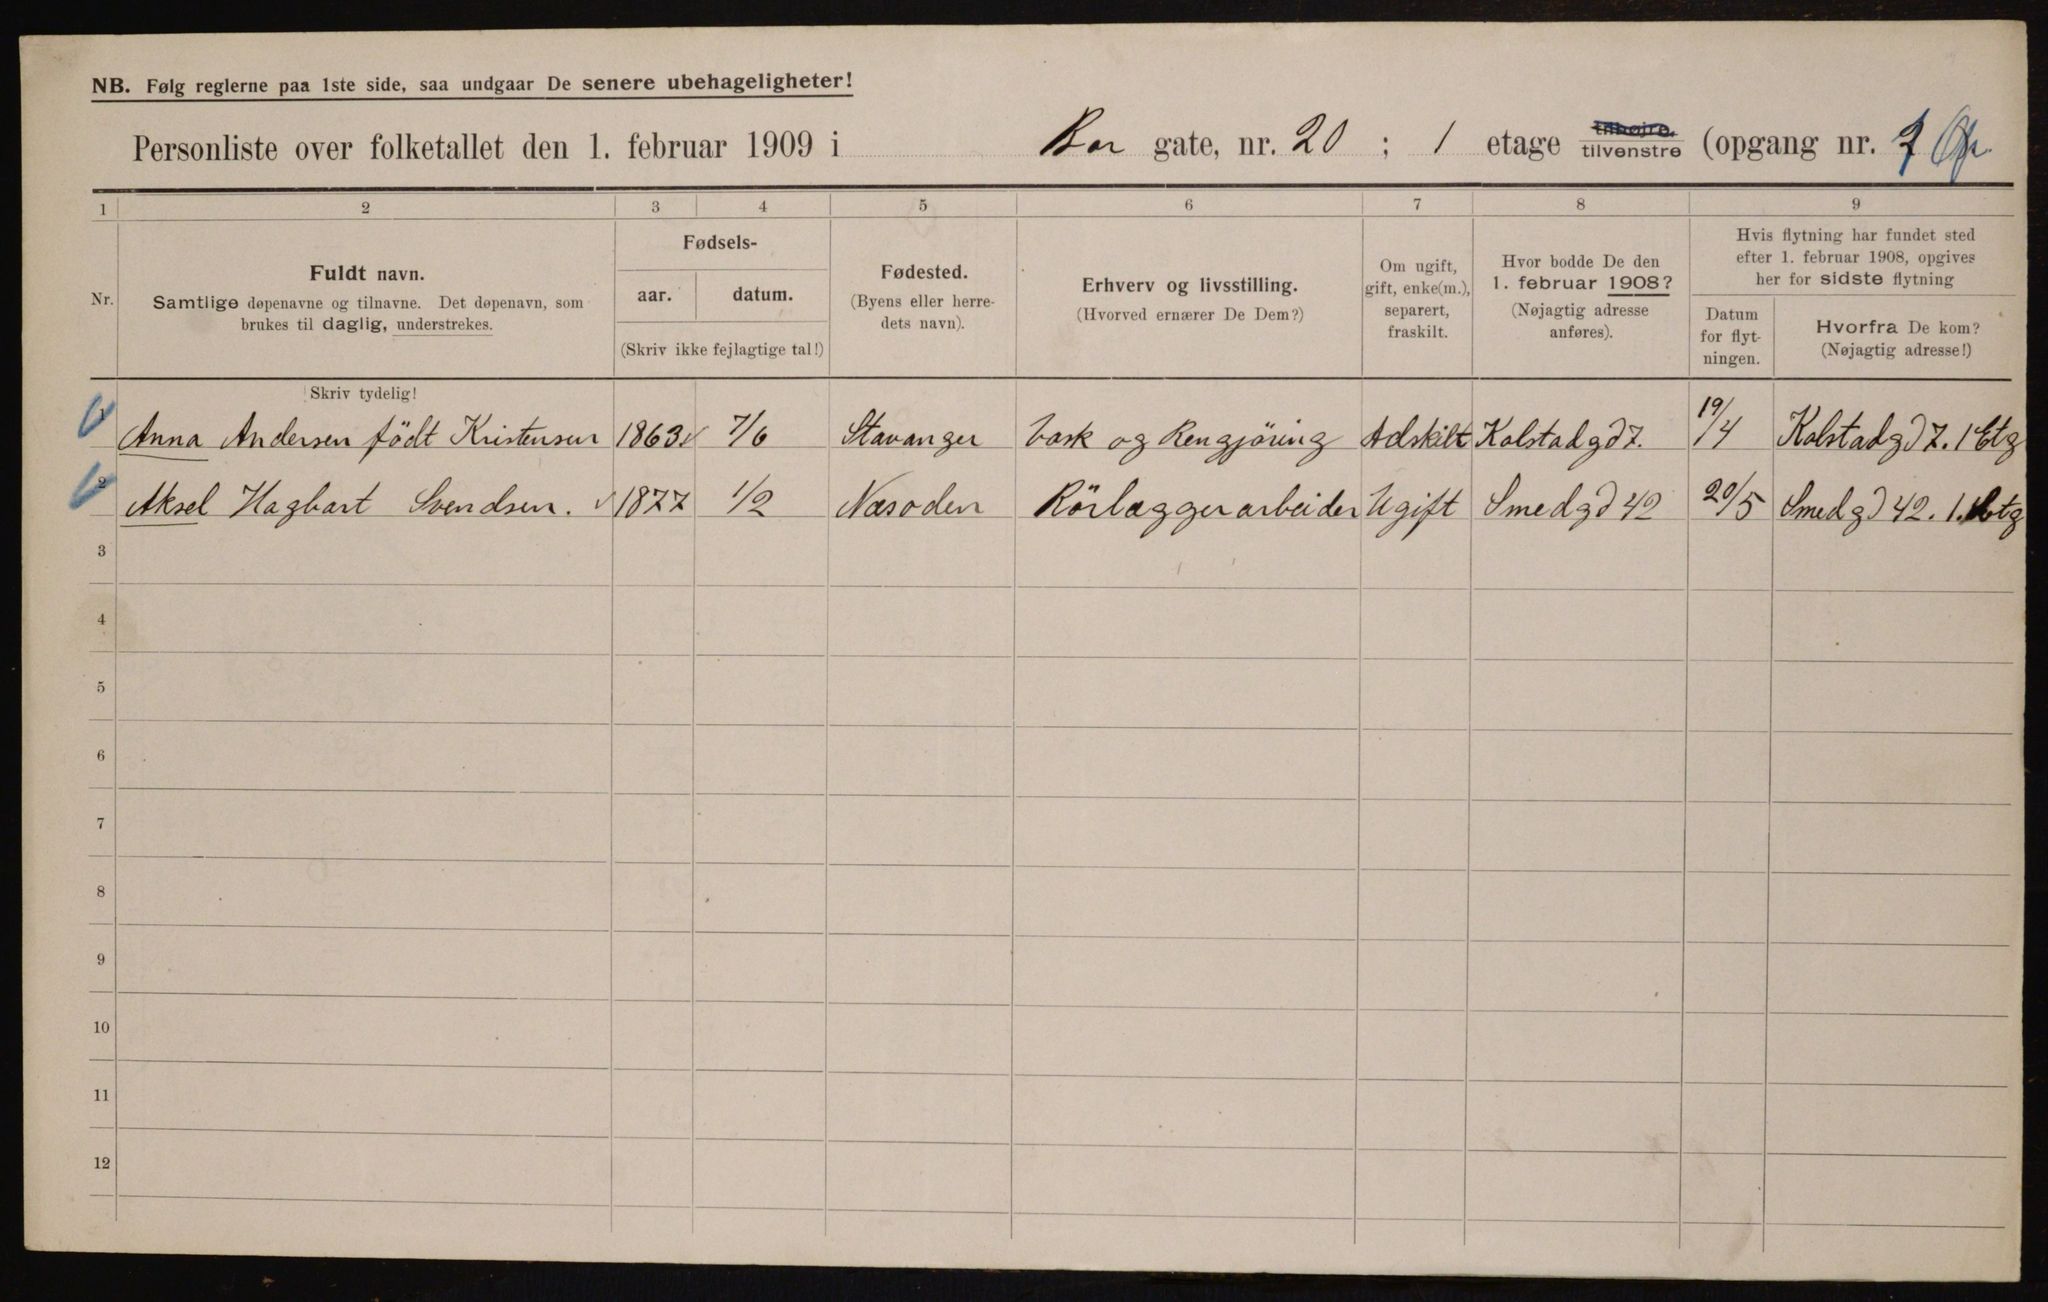 NB. Følg reglerne paa 1ste side, saa undgaar De senere ubehageligheter!
Personliste over folketallet den 1. februar 1909 i Bor gate, nr. 20 ; 1 etage tilhøjre. tilvenstre (opgang nr. 2
1 2 3 4 5 6 7 8 9
Nr.
Fuldt navn.
Samtlige døpenavne og tilnavne. Det døpenavn, som
brukes til daglig, understrekes.
Fødsels-
aar. datum.
(Skriv ikke fejlagtige tal!)
Fødested.
(Byens eller herre-
dets navn).
Erhverv og livsstilling.
(Hvorved ernærer De Dem?)
Om ugift,
gift, enke(m.),
separert,
fraskilt.
Hvor bodde De den
1. februar 1908?
(Nøjagtig adresse
anføres).
Hvis flytning har fundet sted
efter 1. februar 1908, opgives
her for sidste flytning
Datum
for flyt-
ningen.
Hvorfra De kom?
(Nøjagtig adresse!)
Skriv tydelig!
1 Anna Andersen födt Kristensen 1863 7/6 Stavanger Vask og Rengjöring Adskilt Kolstadgd 7. 19/4 Kolstadgd 7. 1 Etg
2 Aksel Hagbart Svendsen. 1877 1/2 Næsoden Rörlæggerarbeider Ugift Smedgd 42 20/5 Smedgd 42. 1. Etg
3
4
5
6
7
8
9
10
11
12